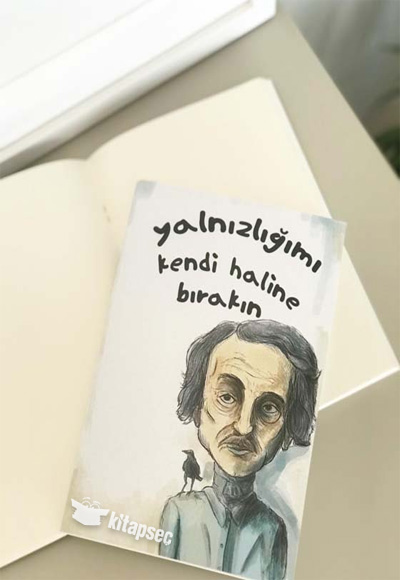 yalnızlığımı
kendi haline
bırakın
kitapseç